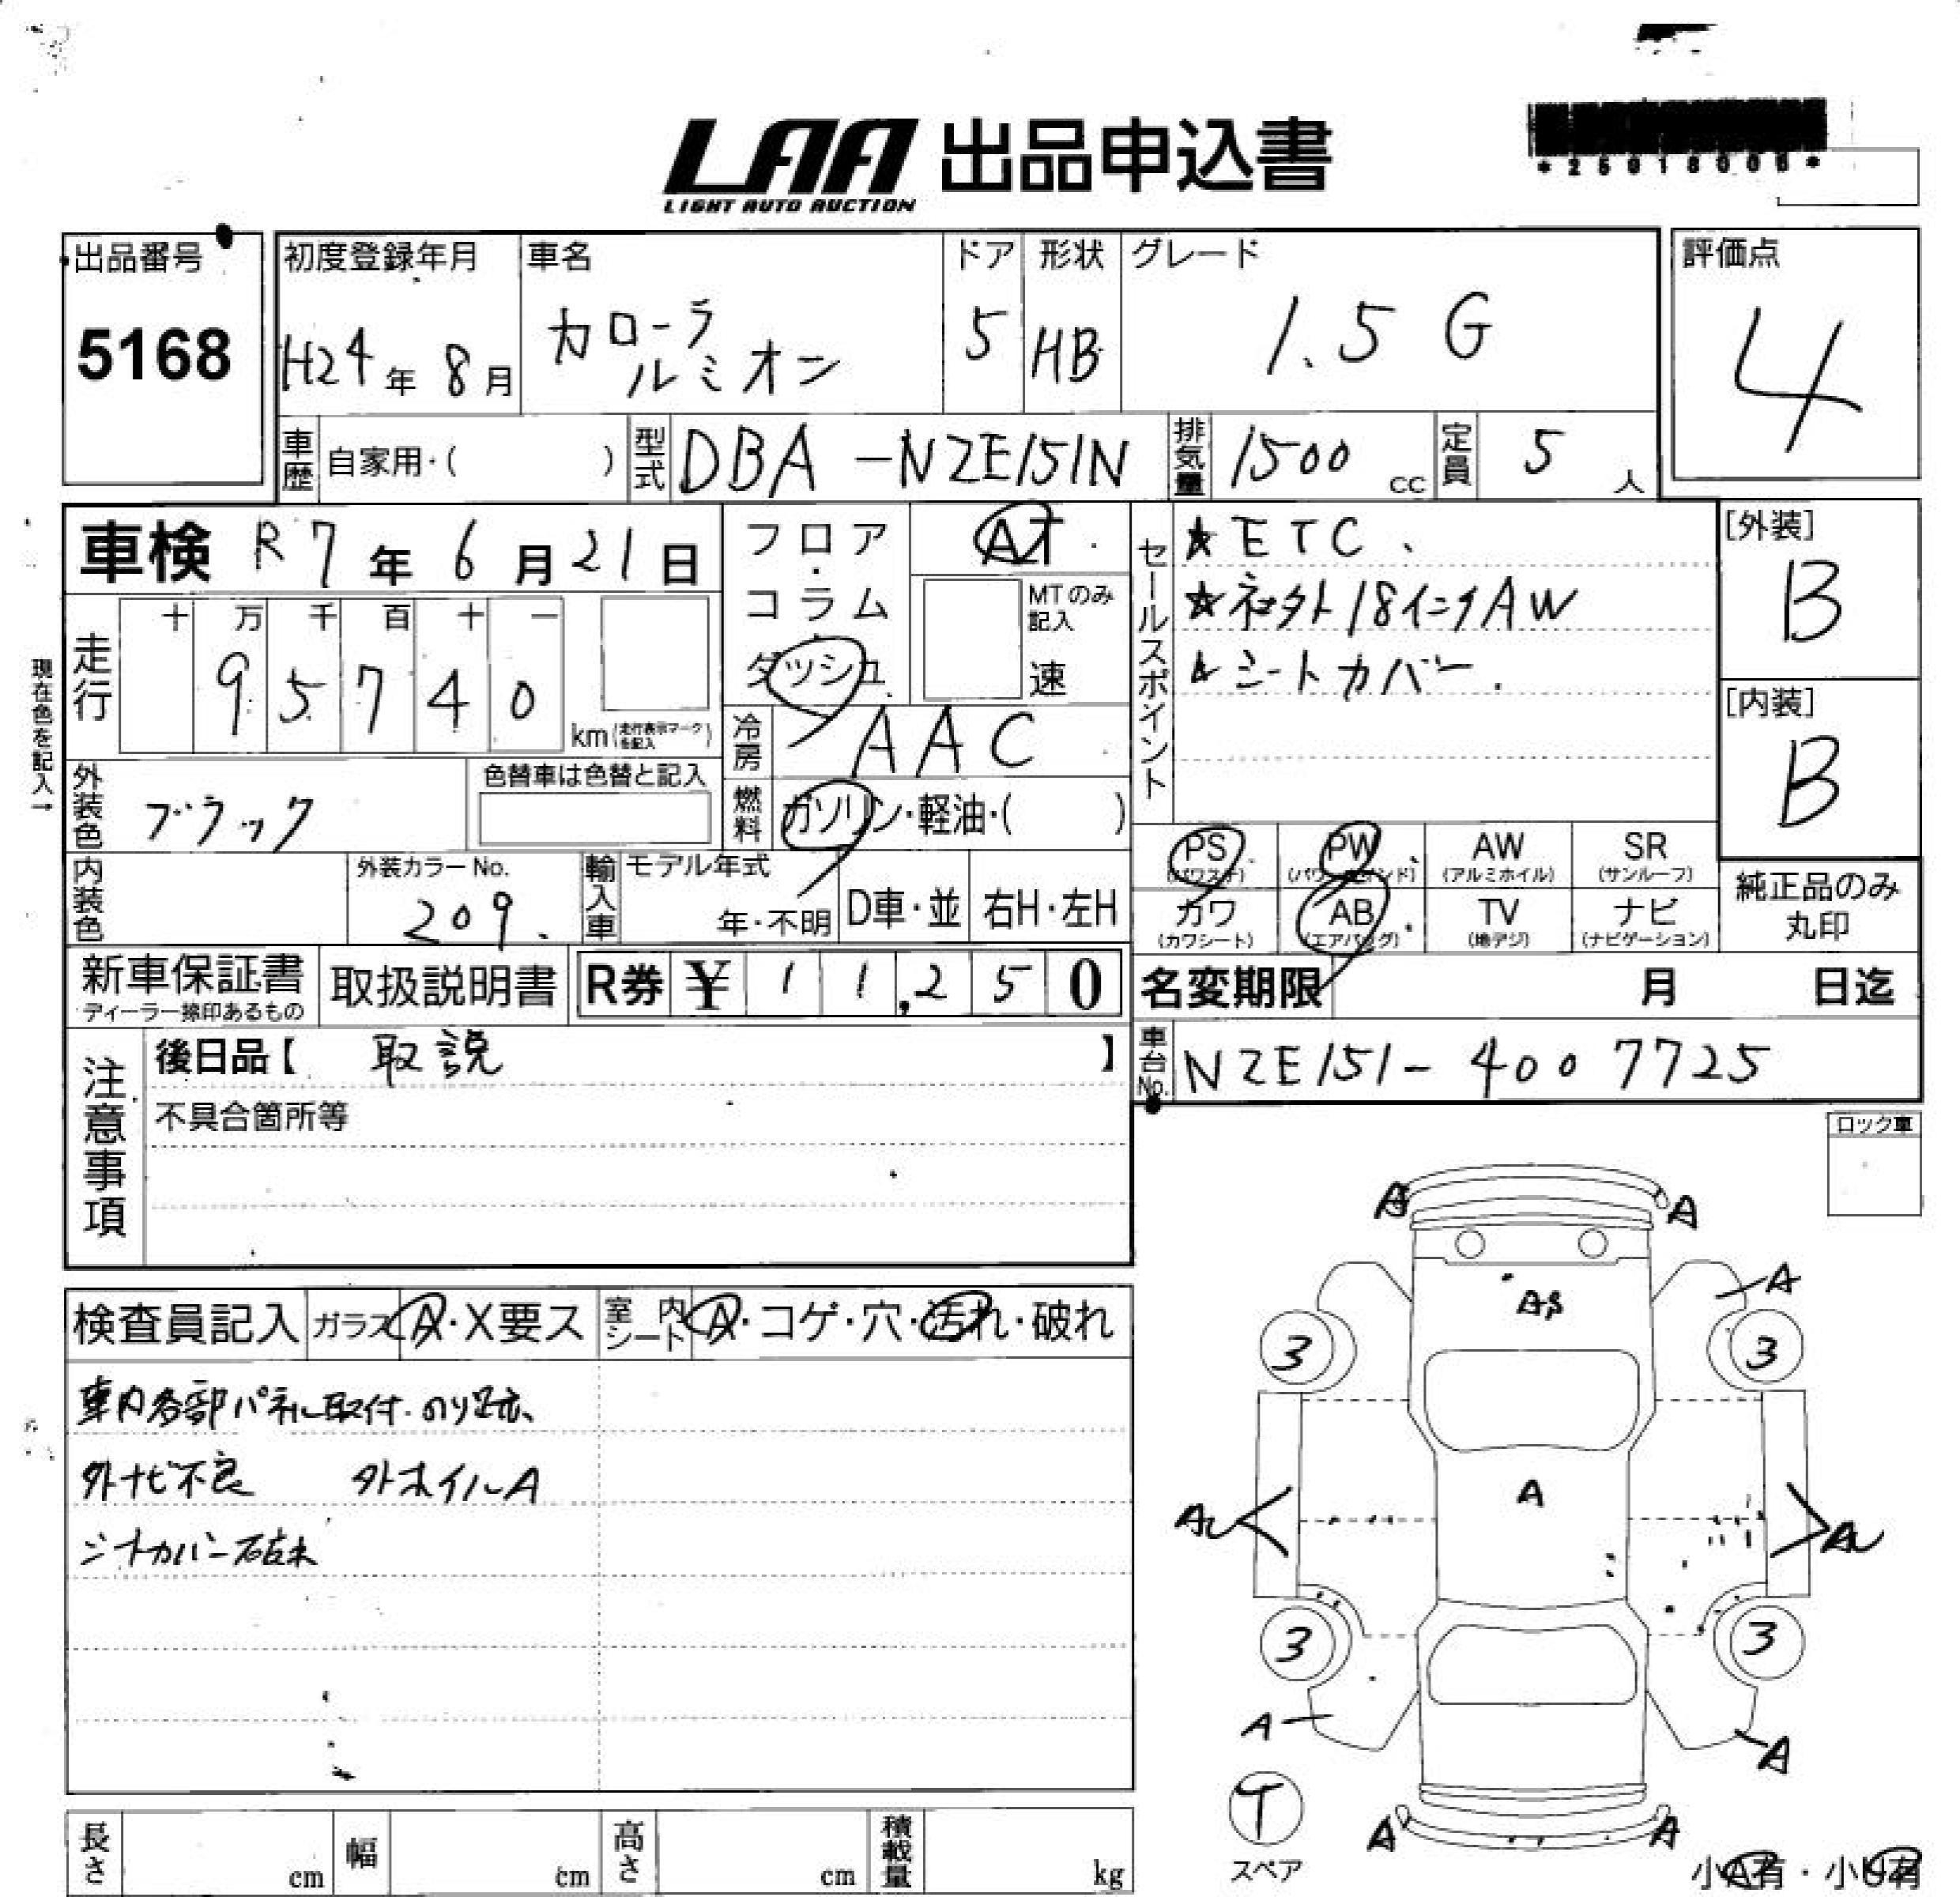 LAA 出品申込書
LIGHT AUTO AUCTION
出品番号
5168
初度登録年月
H24年 8月
車名
カローラ
ルミオン
ドア
5
形状
HB
グレード
1.5 G
評価点
4
車歴
自家用・( )
型式
DBA-NZE151N
排気量
1500 cc
定員
5 人
車検 R7年 6月21日
フロア・コラム・ダッシュ
AT
MTのみ記入
速
セールスポイント
★ETC
★社外18インチAW
★シートカバー
[外装]
B
[内装]
B
現在色を記入→
走行
十 万 千 百 十 一
9 5 7 4 0
km(走行表示マークを記入)
冷房
AAC
外装色
ブラック
色替車は色替と記入
燃料
ガソリン・軽油・( )
内装色
外装カラーNo.
209
輸入車
モデル年式
年・不明
D車・並
右H・左H
PS
(パワステ)
PW
(パワーウインド)
AW
(アルミホイル)
SR
(サンルーフ)
カワ
(カワシート)
AB
(エアバッグ)
TV
(地デジ)
ナビ
(ナビゲーション)
純正品のみ
丸印
新車保証書
ディーラー捺印あるもの
取扱説明書
R券 ¥ 1 1,2 5 0
名変期限 月 日迄
注意事項
後日品【 取説 】
不具合箇所等
車台No.
NZE151-4007725
ロック車
検査員記入
ガラス
A・X要ス
室内シート
A・コゲ・穴・汚れ・破れ
車内各部パネル取付・のり跡、
外ナビ不良 外ホイルA
シートカバー破れ
A A
A
3 3
A
AU AU
3 3
A A
T
スペア
A A
小A有・小U有
長さ cm
幅 cm
高さ cm
積載量 kg